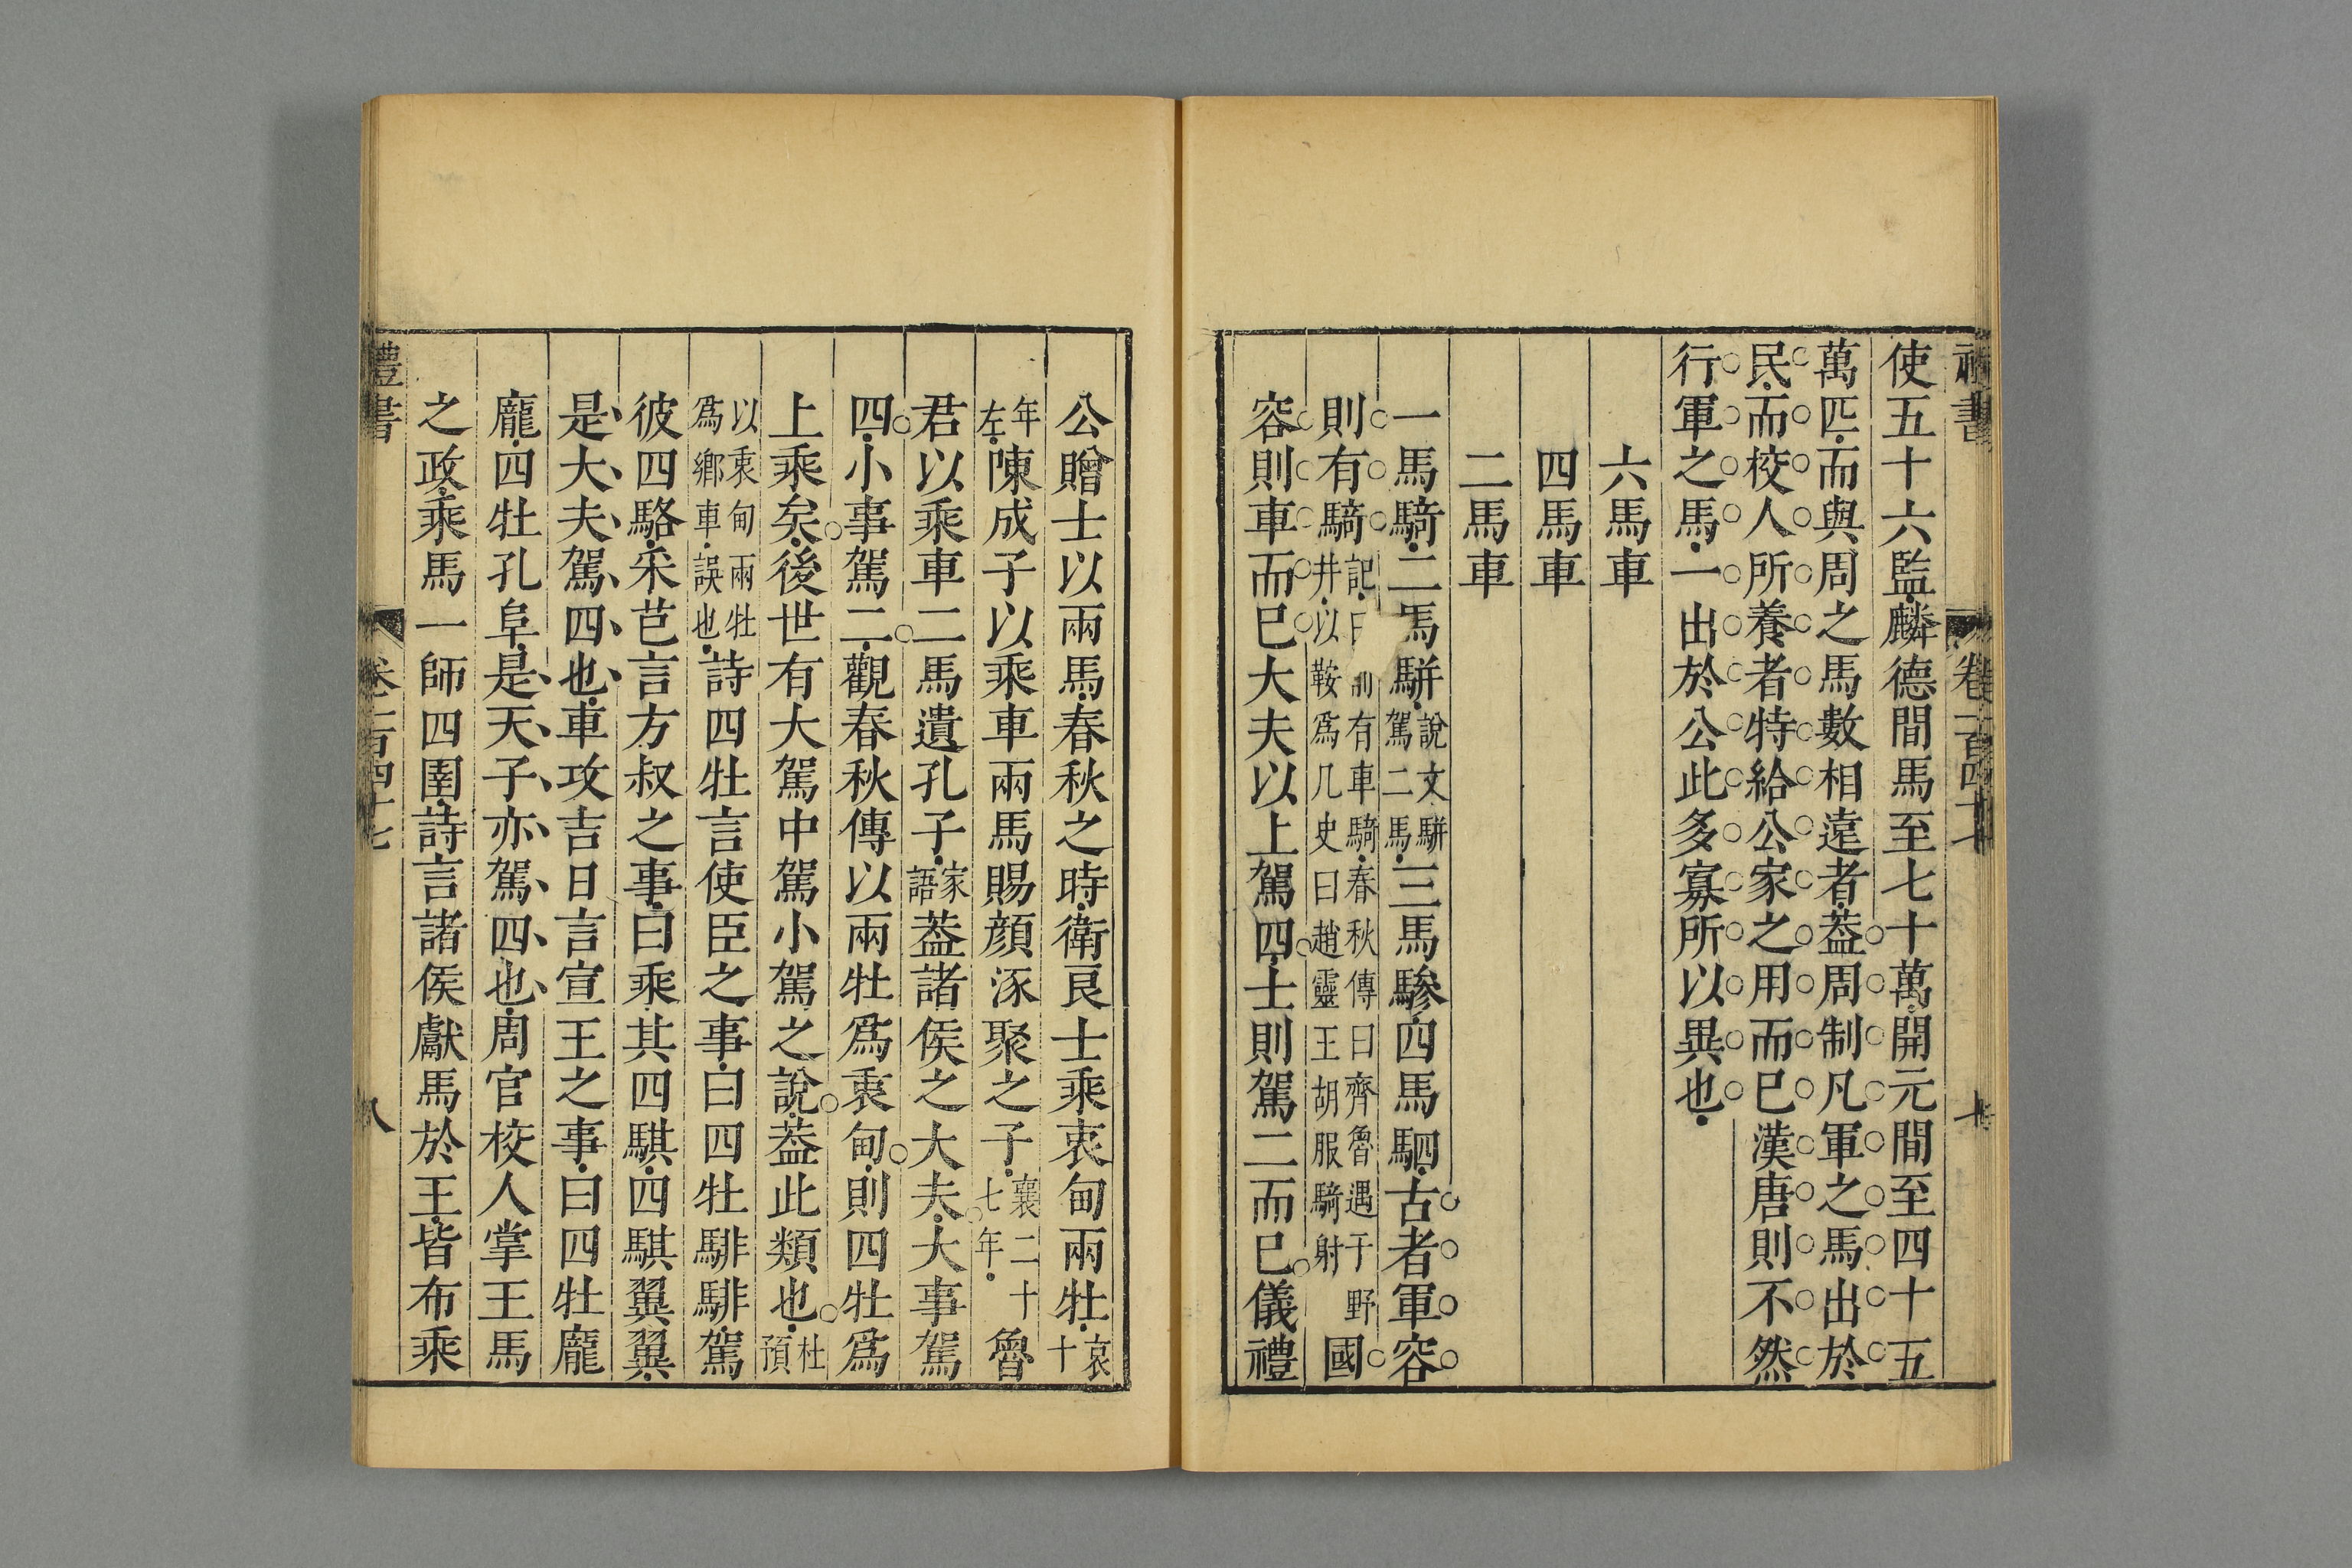 禮書 卷一百四十七
使五十六監麟德間馬至七十萬開元間至四十五
萬匹而與周之馬數相遠者葢周制凡軍之馬出於
民而校人所養者特給公家之用而已漢唐則不然
行軍之馬一出於公此多寡所以異也
六馬車
四馬車
二馬車
一馬騎二馬駢說文駢駕二馬三馬驂四馬駟古者軍容
則有騎記曰前有車騎春秋傳曰齊魯遇于野井以鞍爲几史曰趙靈王胡服騎射國
容則車而已大夫以上駕四士則駕二而已儀禮
公贈士以兩馬春秋之時衛良士乘衷甸兩牡哀十
年左陳成子以乘車兩馬賜顔涿聚之子襄二十七年魯
君以乘車二馬遺孔子家語葢諸侯之大夫大事駕
四小事駕二觀春秋傳以兩牡爲衷甸則四牡爲
上乘矣後世有大駕中駕小駕之說葢此類也杜預
以衷甸兩牡爲鄉車誤也詩四牡言使臣之事曰四牡騑騑駕
彼四駱采芑言方叔之事曰乘其四騏四騏翼翼
是大夫駕四也車攻吉日言宣王之事曰四牡龐
龐四牡孔阜是天子亦駕四也周官校人掌王馬
之政乘馬一師四圉詩言諸侯獻馬於王皆布乘
禮書 卷一百四十七 八